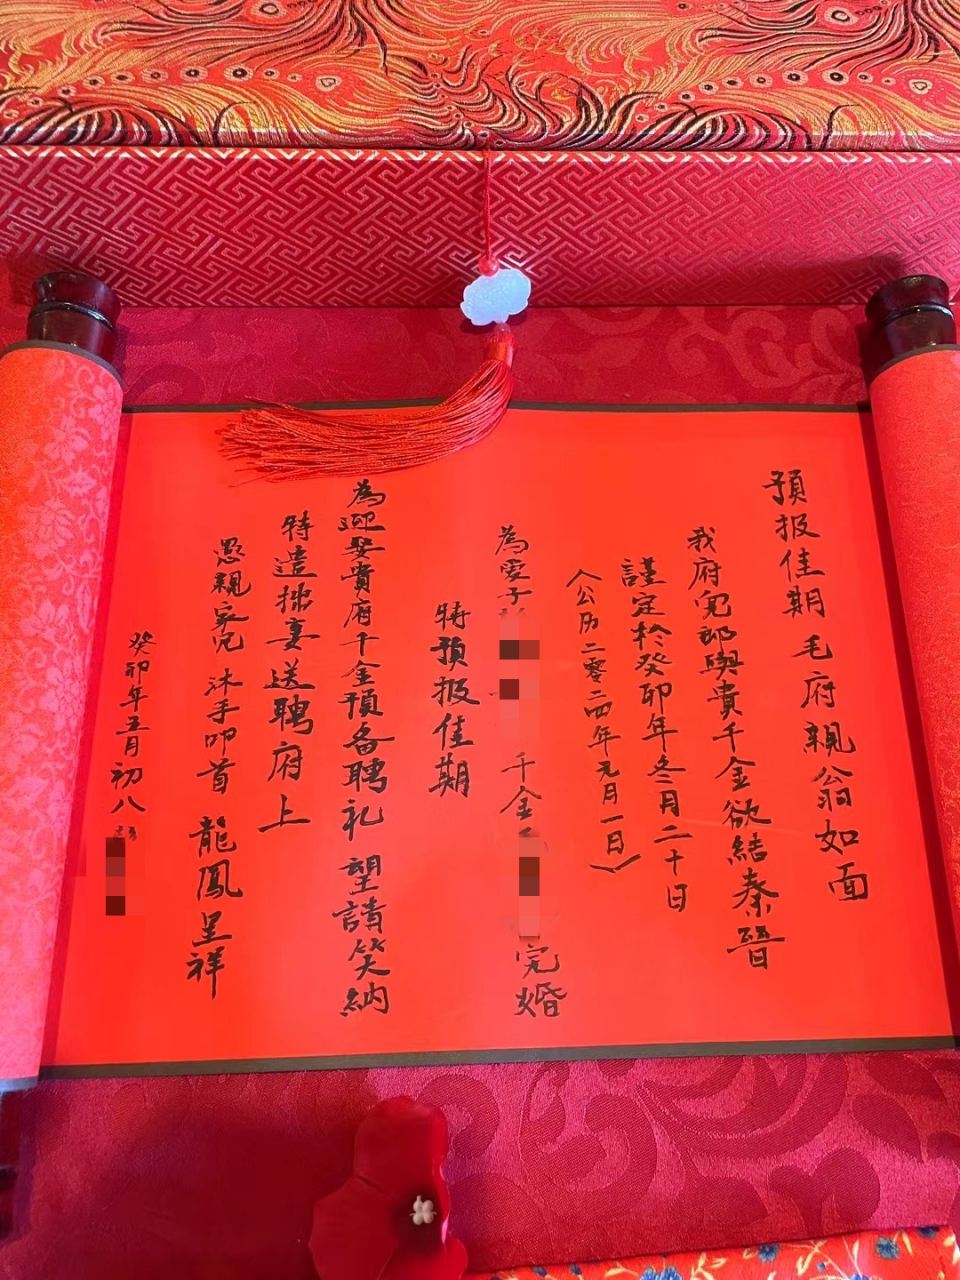 預报佳期 毛府親翁如面
我府兒郎與貴千金欲結秦晉
謹定於癸卯年冬月二十日
(公历二零二四年元月一日)
為愛子 千金 完婚
特預报佳期
為迎娶貴府千金預备聘礼 望請笑納
特遣拙妻送聘府上
愚親家兄 沐手叩首 龍鳳呈祥
癸卯年五月初八